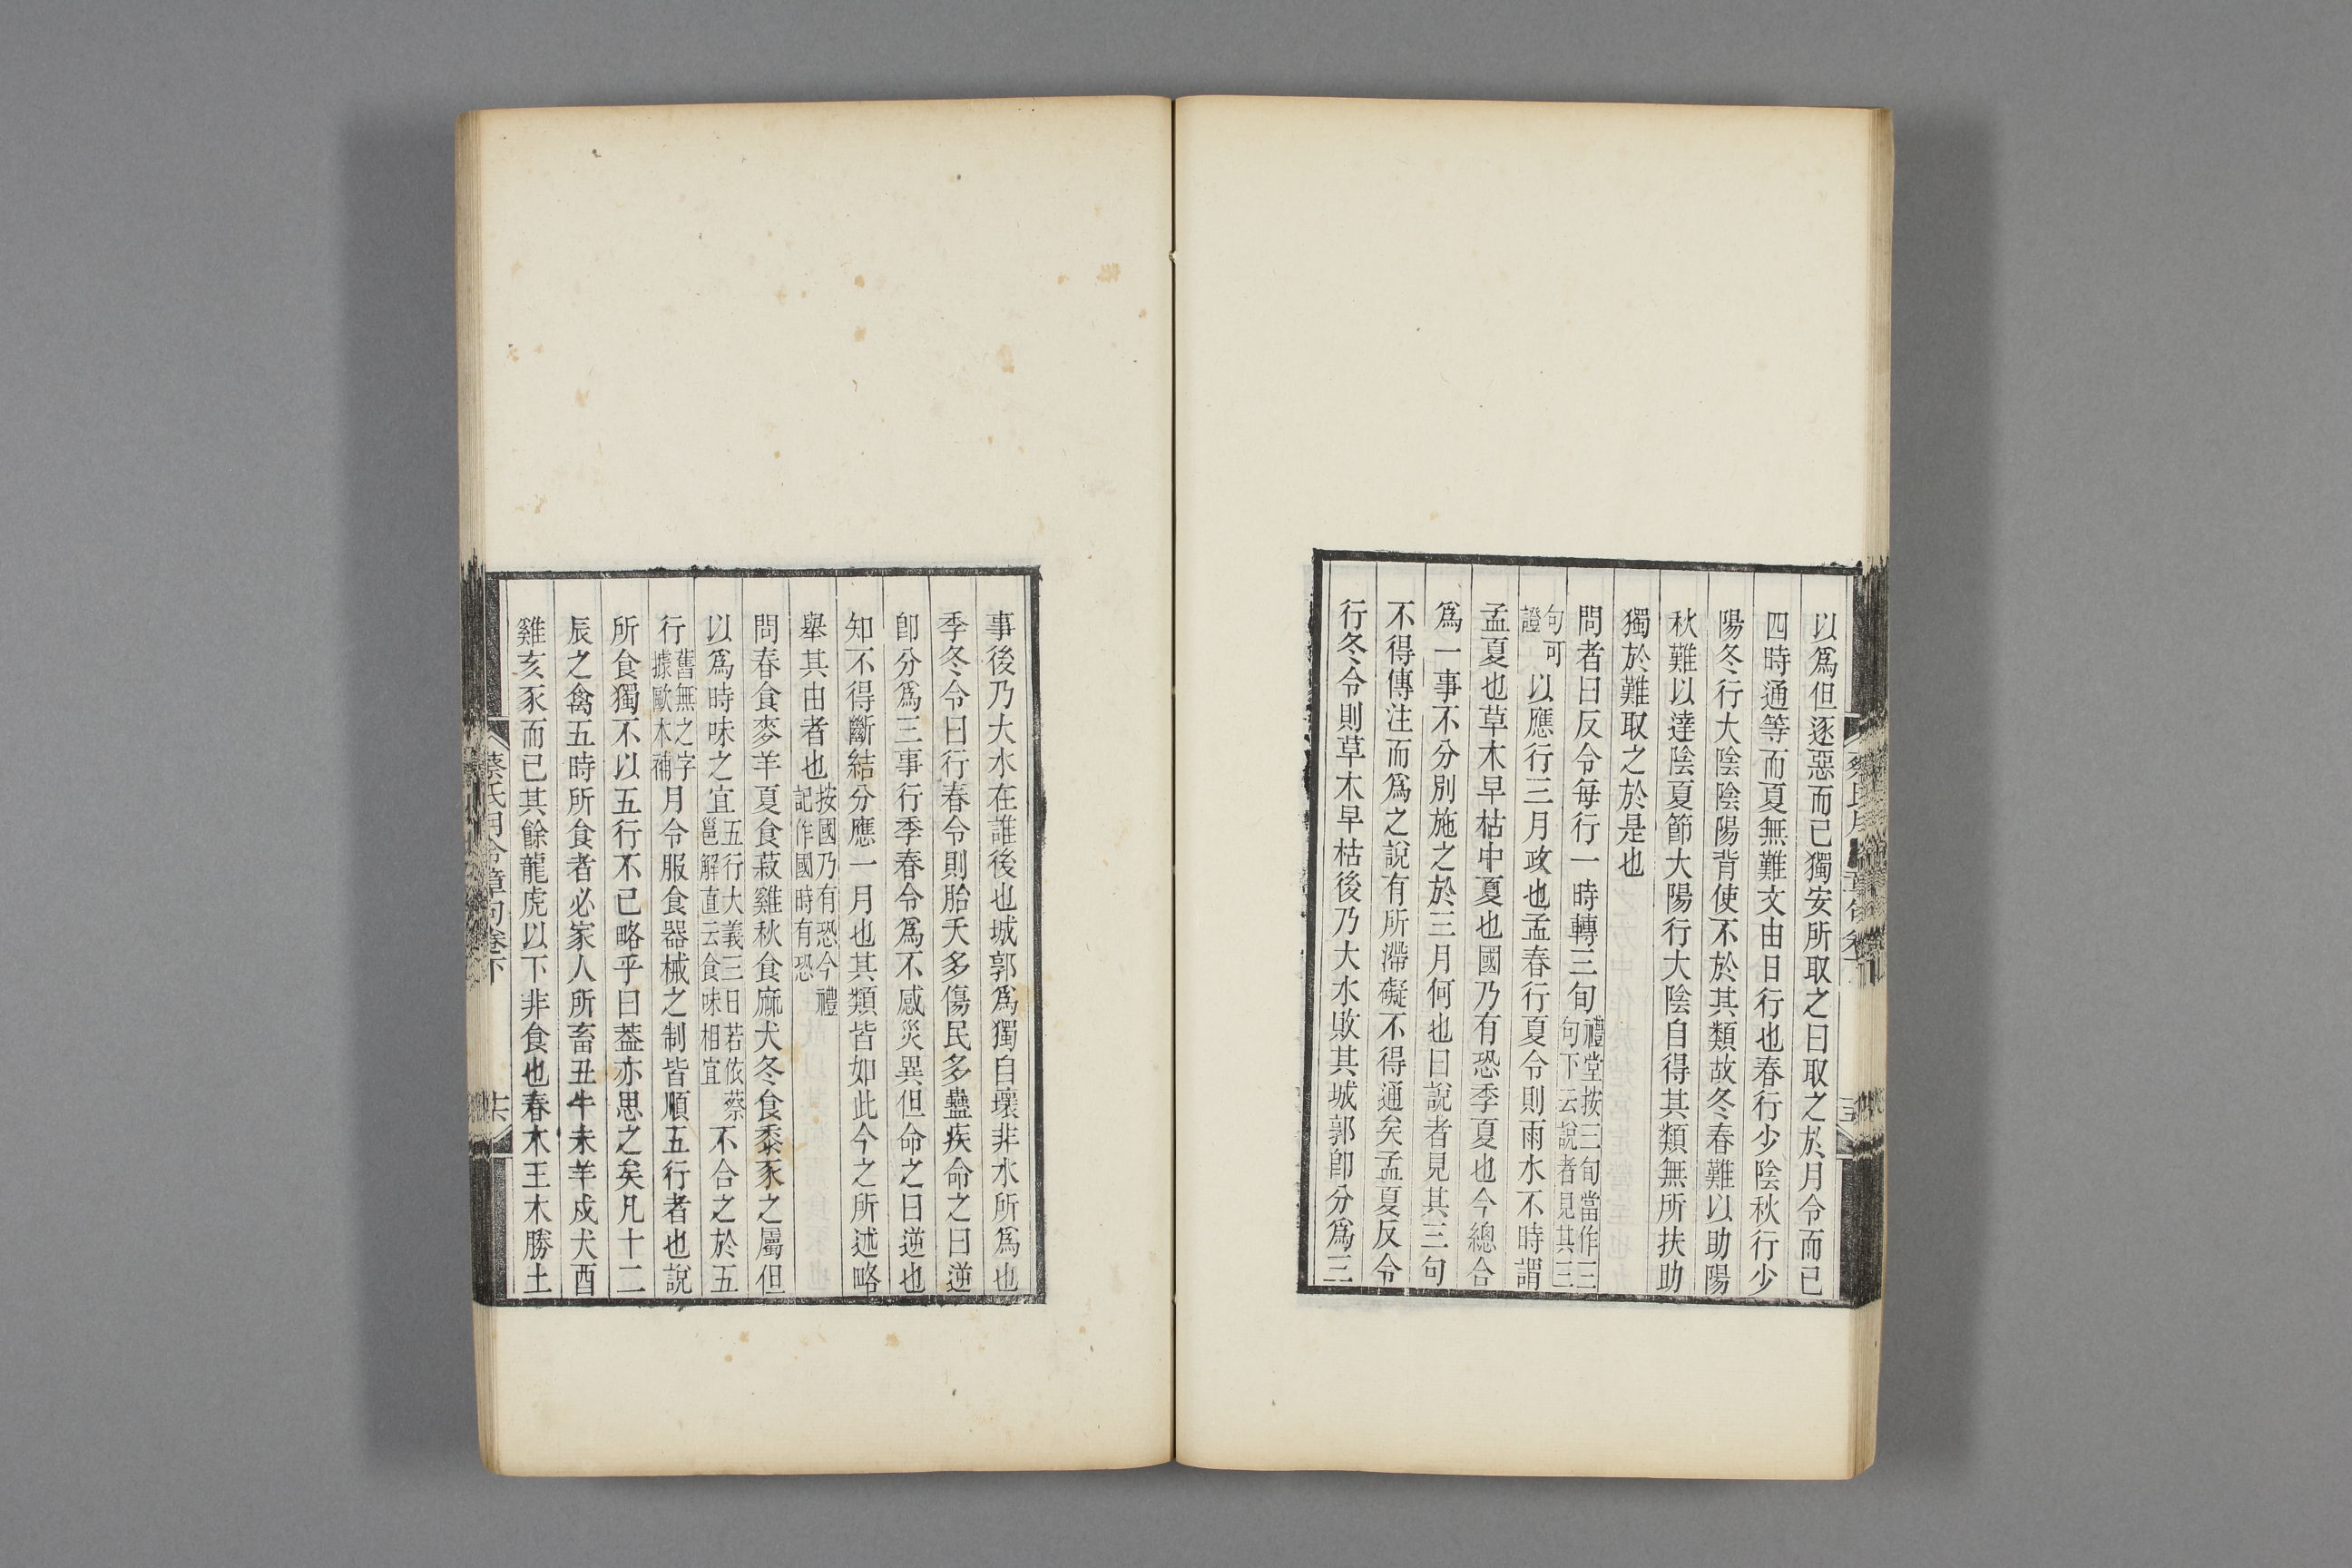 以爲但逐惡而已獨安所取之曰取之於月令而已
四時通等而夏無難文由日行也春行少陰秋行少
陽冬行大陰陰陽背使不於其類故冬春難以助陽
秋難以達陰夏節大陽行大陰自得其類無所扶助
獨於難取之於是也
問者曰反令每行一時轉三旬禮堂按三旬當作三句下云說者見其三
句可證以應行三月政也孟春行夏令則雨水不時謂
孟夏也草木早枯中夏也國乃有恐季夏也今總合
爲一事不分別施之於三月何也曰說者見其三句
不得傳注而爲之說有所滯礙不得通矣孟夏反令
行冬令則草木早枯後乃大水敗其城郭卽分爲三
事後乃大水在誰後也城郭爲獨自壞非水所爲也
季冬令曰行春令則胎夭多傷民多蠱疾命之曰逆
卽分爲三事行季春令爲不感災異但命之曰逆也
知不得斷結分應一月也其類皆如此今之所述略
舉其由者也按國乃有恐今禮記作國時有恐
問春食麥羊夏食菽雞秋食麻犬冬食黍豕之屬但
以爲時味之宜五行大義三曰若依蔡邕解直云食味相宜不合之於五
行舊無之字據歐本補月令服食器械之制皆順五行者也說
所食獨不以五行不已略乎曰葢亦思之矣凡十二
辰之禽五時所食者必家人所畜丑牛未羊戌犬酉
雞亥豕而已其餘龍虎以下非食也春木王木勝土
蔡氏月令章句卷下